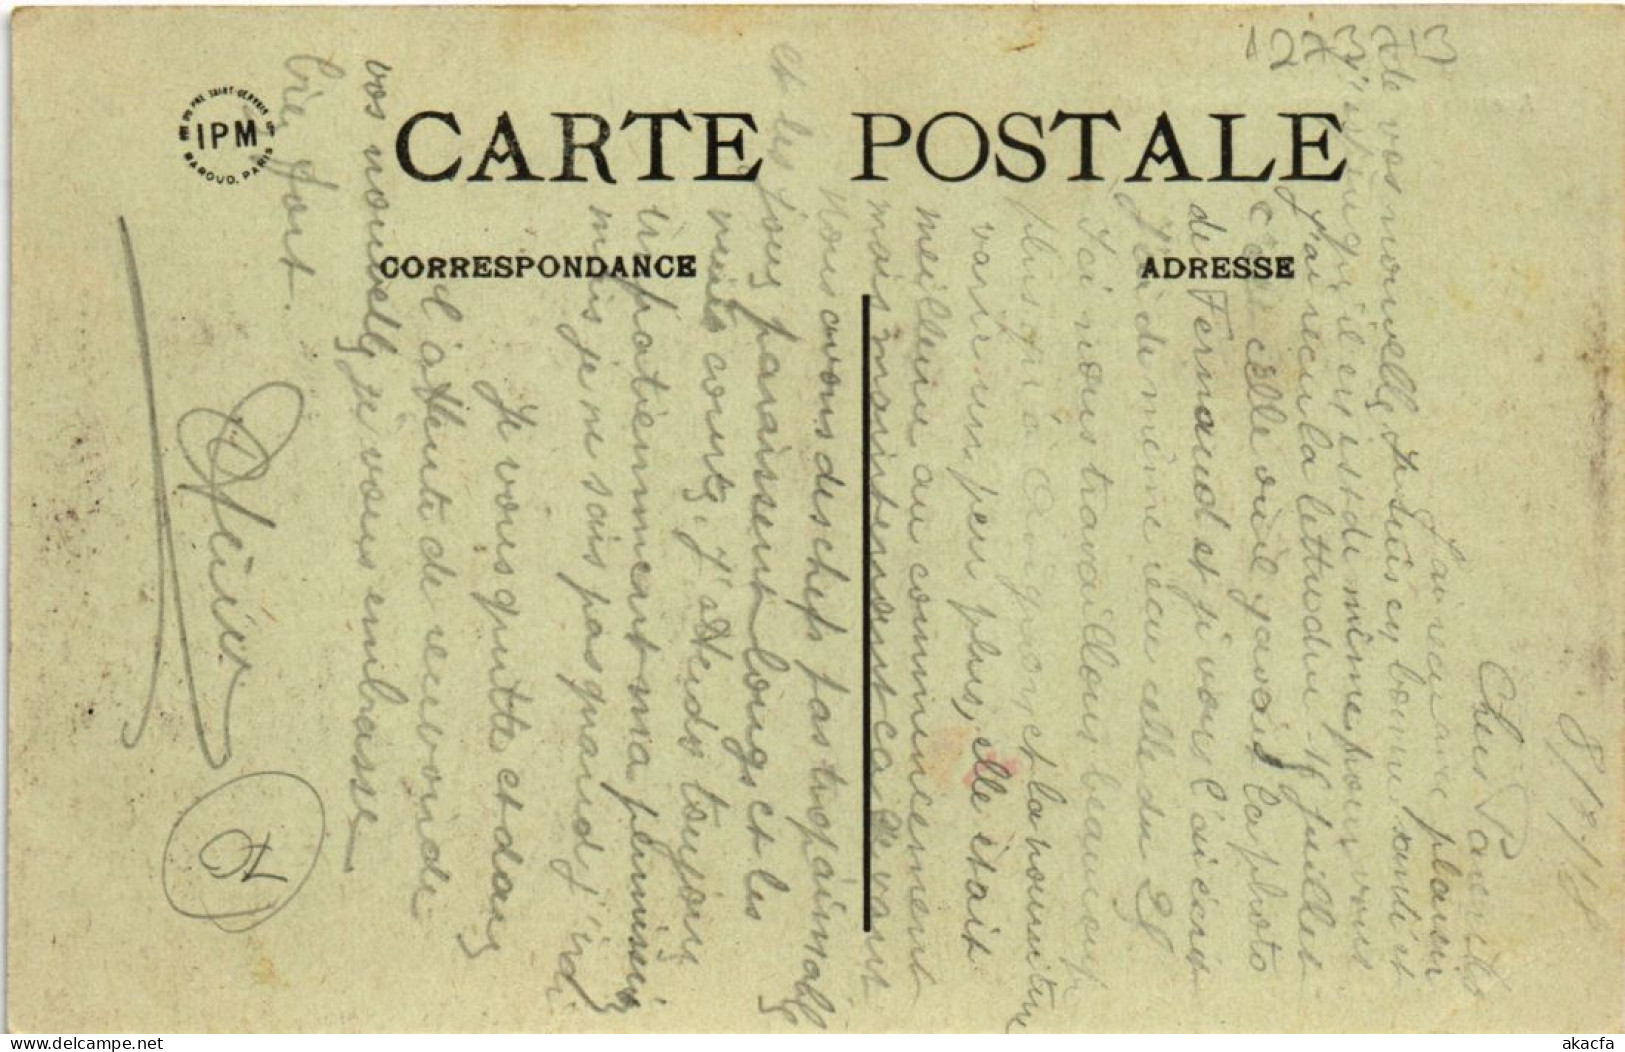 CARTE POSTALE
CORRESPONDANCE
ADRESSE
IPM
BAROUD. PARIS
8/8/18
Chers Parents
J'ai reçu avec plaisir
de vos nouvelles, je suis en bonne santé et
j'espère qu'il en est de même pour vous
J'ai reçu la lettre du 16 juillet
c'est celle où il y avait la photo
de Fernand et je vous l'ai écrit
J'ai de même reçu celle du 28
Ici nous travaillons beaucoup
plus qu'à et la nourriture
varie un peu plus, elle était
meilleure au commencement
mais maintenant ça devant
Nous avons des chefs pas trop animals
et les jours paraissent longs et les
nuits courtes. J'attends toujours
impatiemment ma permission
mais je ne sais pas quand j'irai
Je vous quitte et dans
l'attente de revoir de
vos nouvelles je vous embrasse
bien fort.
akacfa